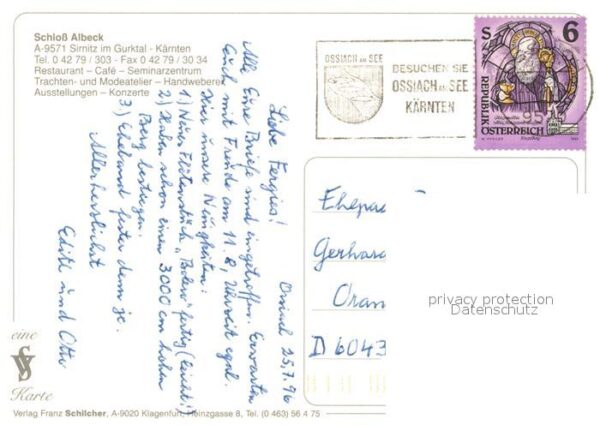 Schloß Albeck
A-9571 Sirnitz im Gurktal - Kärnten
Tel. 0 42 79 / 303 - Fax 0 42 79 / 30 34
Restaurant – Café – Seminarzentrum
Trachten- und Modeatelier – Handweberei
Ausstellungen – Konzerte
OSSIACH AM SEE
BESUCHEN SIE
OSSIACH AM SEE
KÄRNTEN
S 6
REPUBLIK
ÖSTERREICH
95
Ossiach 25.7.96
Liebe Fergies!
Alle Eure Briefe sind eingetroffen. Erwarten
Euch mit Freude am 11.8, Uhrzeit egal.
Hier unsere Neuigkeiten:
1) Neues Flötenstück "Bolero" fertig
2) Haben schon einen 3000 cm hohen
Berg bestiegen.
3) Eheband fester denn je.
Allerherzlichst
Edith und Otto
Ehepaar
Gerhard
Oran
D 6043
privacy protection
Datenschutz
eine
Karte
Verlag Franz Schilcher, A-9020 Klagenfurt, Heinzgasse 8, Tel. (0 463) 56 4 75